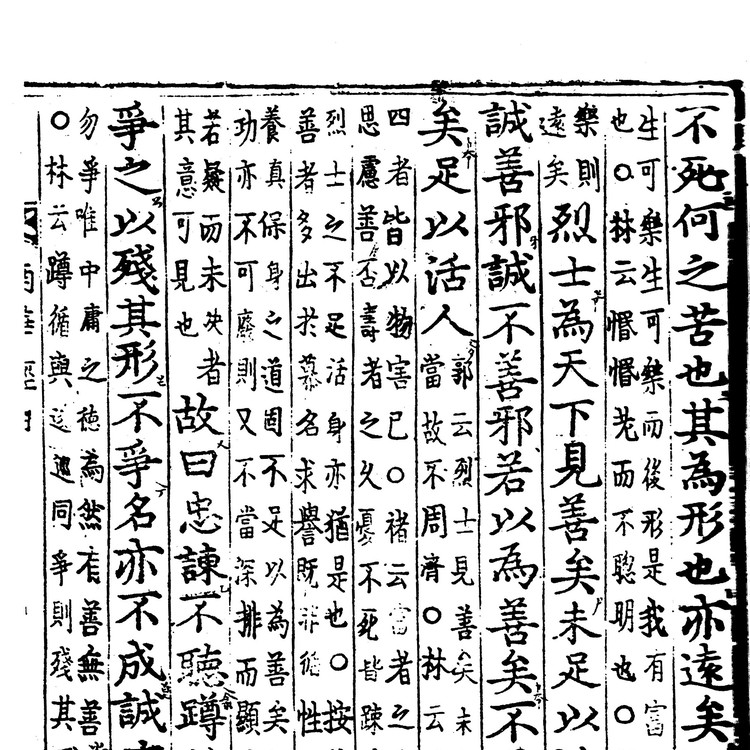 不死何之苦也其為形也亦遠矣
生可樂生可樂而後形是我有富
也○林云惽惽㒵而不聡明也○
樂則
遠矣
烈士為天下見善矣未足以
誠善邪誠不善邪若以為善矣不
矣足以活人
郭云烈士見善矣未
當故不周濟○林云
四者皆以物害已○褚云富者之
思慮善否壽者之久憂不死皆踈
烈士之不足活身亦猶是也○按
善者多出於慕名求譽既非循性
養真保身之道固不足以為善矣
功亦不可廢則又不當深排而顯
若疑而未决者
其意可見也
故曰忠諫不聽蹲
爭之以殘其形不爭名亦不成誠
勿爭唯中庸之徳為然有善無善
○林云蹲循與逡廵同爭則殘其